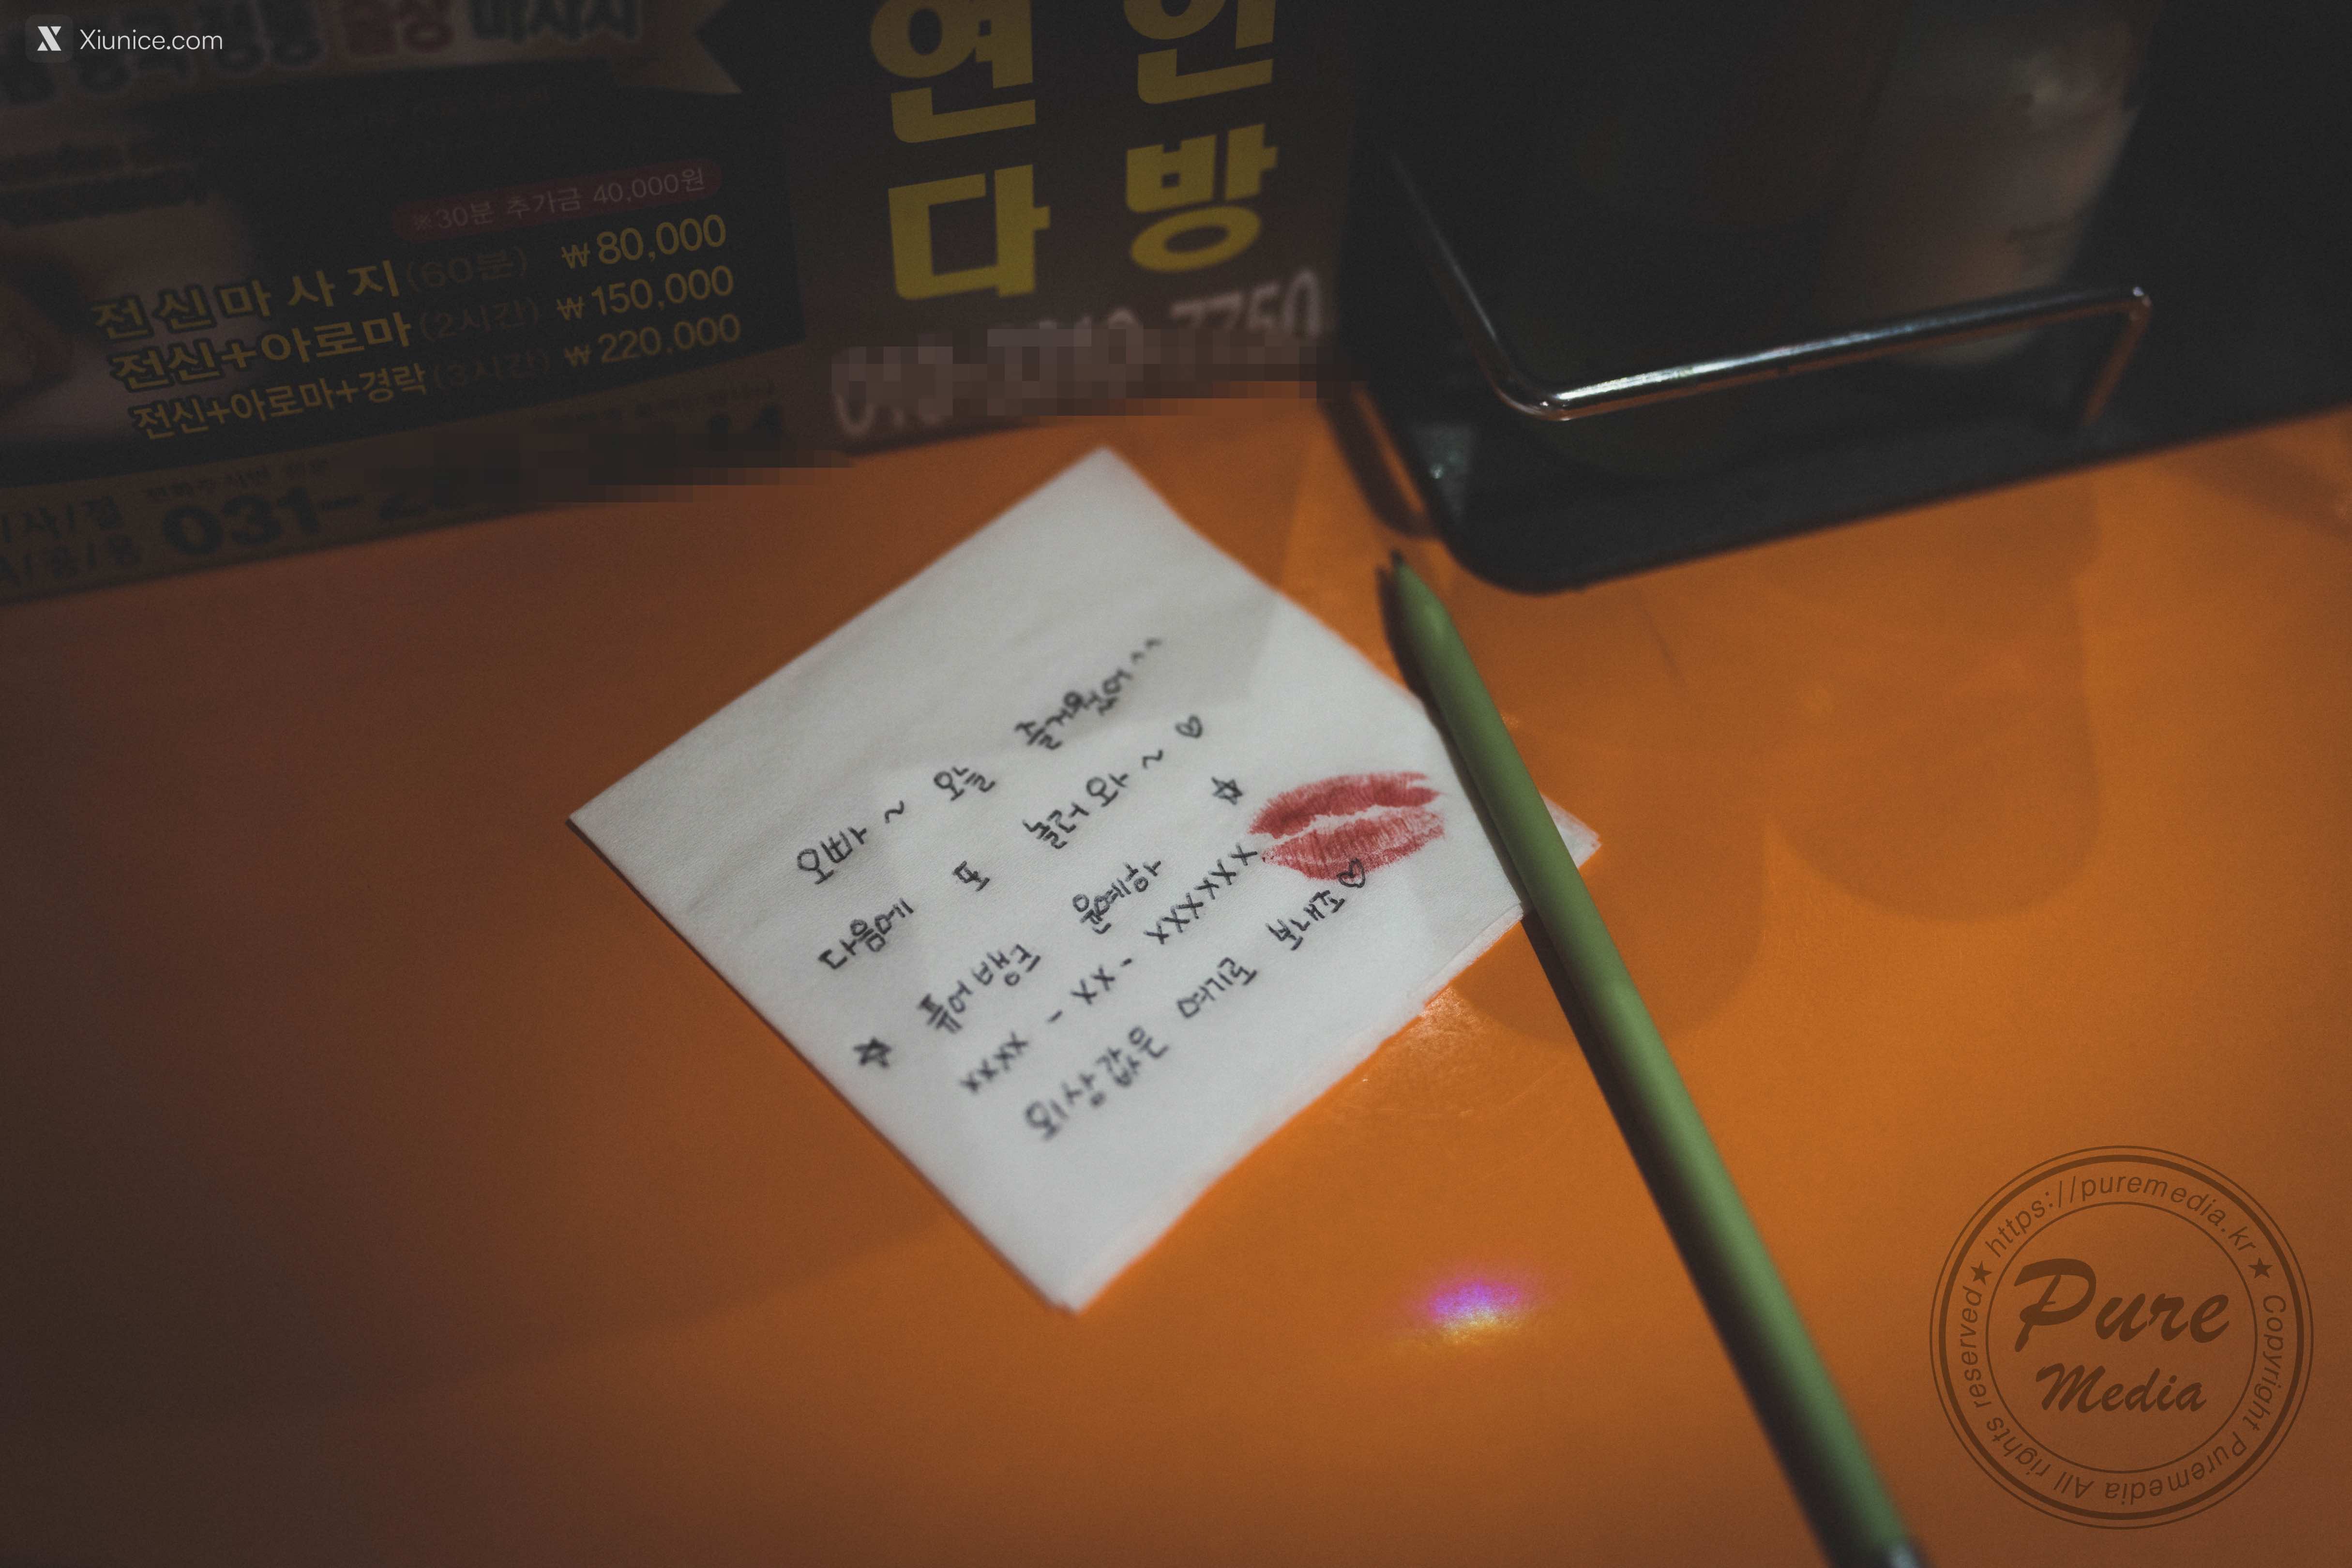 Xiunice.com
마사지
※30분 추가금 40,000원
전신마사지(60분) ₩80,000
전신+아로마(2시간) ₩150,000
전신+아로마+경락(3시간) ₩220,000
031-2
연인
다방
오빠~ 오늘 즐거웠어^^
다음에 또 놀러와~♡
☆ 퓨어뱅크 윤예항 ☆
xxxx-xx-xxxxxxx
외상값은 여기로 보내죠♡
https://puremedia.kr ★ Copyright Puremedia All rights reserved ★
Pure
Media